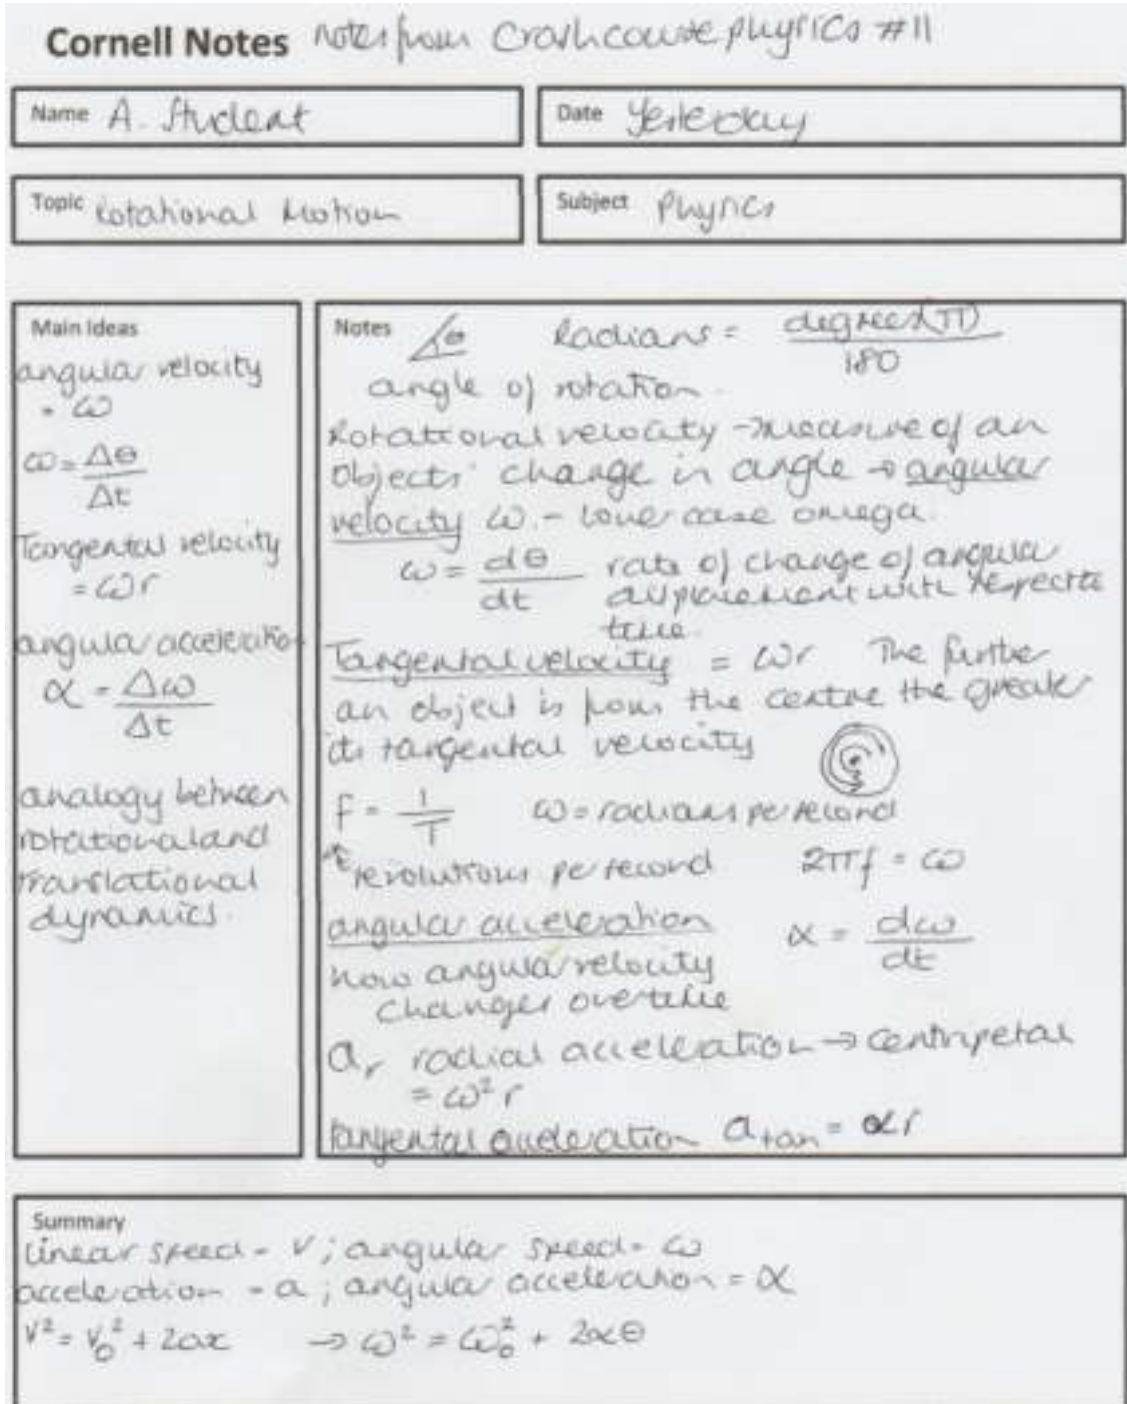 Cornell Notes notes from Crashcourse physics #11
Name A. Student
Date Yesterday
Topic Rotational Motion
Subject Physics
Main Ideas
angular velocity
= ω
ω = Δθ/Δt
Tangental velocity
= ωr
angular acceleration
α = Δω/Δt
analogy between
rotational and
translational
dynamics.
Notes θ Radians = degrees(π)/180
angle of rotation.
Rotational velocity → measure of an
objects' change in angle → angular
velocity ω. - lower case omega.
ω = dθ/dt rate of change of angular
displacement with respect to
time.
Tangental velocity = ωr The further
an object is from the centre the greater
its tangental velocity
f = 1/T ω = radians per second
revolutions per second 2πf = ω
angular acceleration α = dω/dt
how angular velocity
changes over time
aᵣ radial acceleration → centripetal
= ω² r
tangental acceleration a tan = αr
Summary
Linear speed = v ; angular speed = ω
acceleration = a ; angular acceleration = α
v² = v₀² + 2ax → ω² = ω₀² + 2αθ